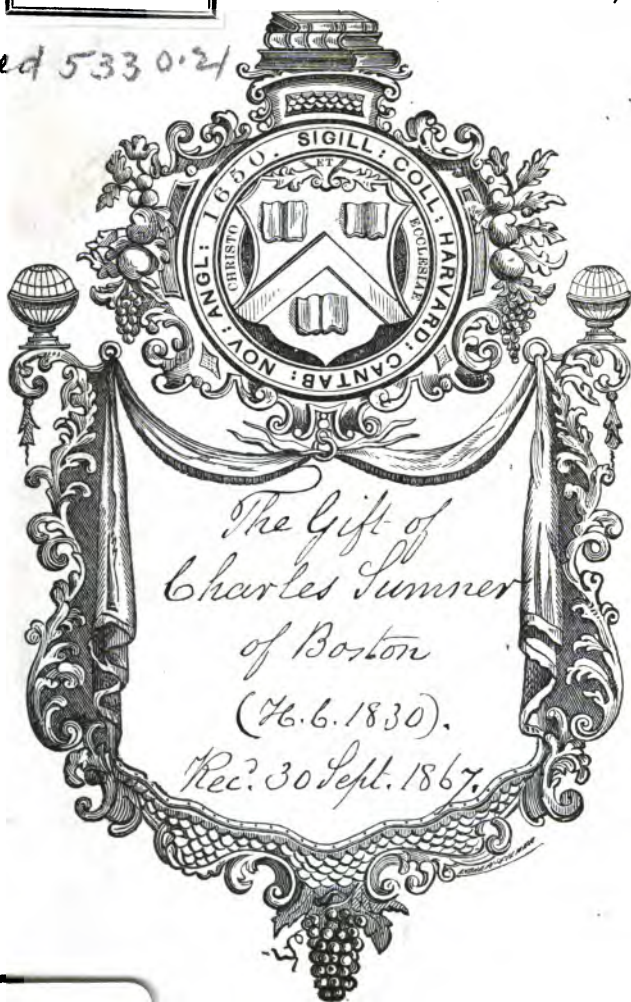 5330.21
SIGILL: COLL: HARVARD: CANTAB: NOV: ANGL: 1650.
ET
CHRISTO
ECCLESIAE
The Gift of
Charles Sumner
of Boston
(H.C. 1830).
Rec'd. 30 Sept. 1867.